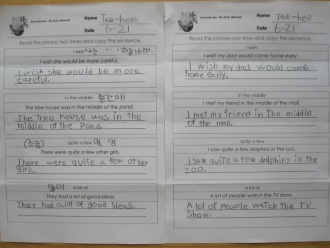 Name Tae-hee
Date 6-21
Read the phrase two times and copy the sentence.
I wish
I wish she would be more careful.
I wish she would be more
careful.
in the middle of
The tree house was in the middle of the pond.
The tree house was in the
middle of the Pond.
quite a few
There were quite a few other girls.
There were quite a few other
girls.
많이
a lot of
They had a lot of good ideas.
They had alot of good ideas.
Name Tae-hee
Date 6-21
Read the phrase two times and copy the sentence.
I wish
I wish my dad would come home early.
I wish my dad would come
home early.
in the middle of
I met my friend in the middle of the mall.
I met my friend in the middle
of the mall.
quite a few
I saw quite a few dolphins in the zoo.
I saw quite a few dolphins in the
zoo.
a lot of
A lot of people watch the TV show.
A lot of People watch the TV
Show.